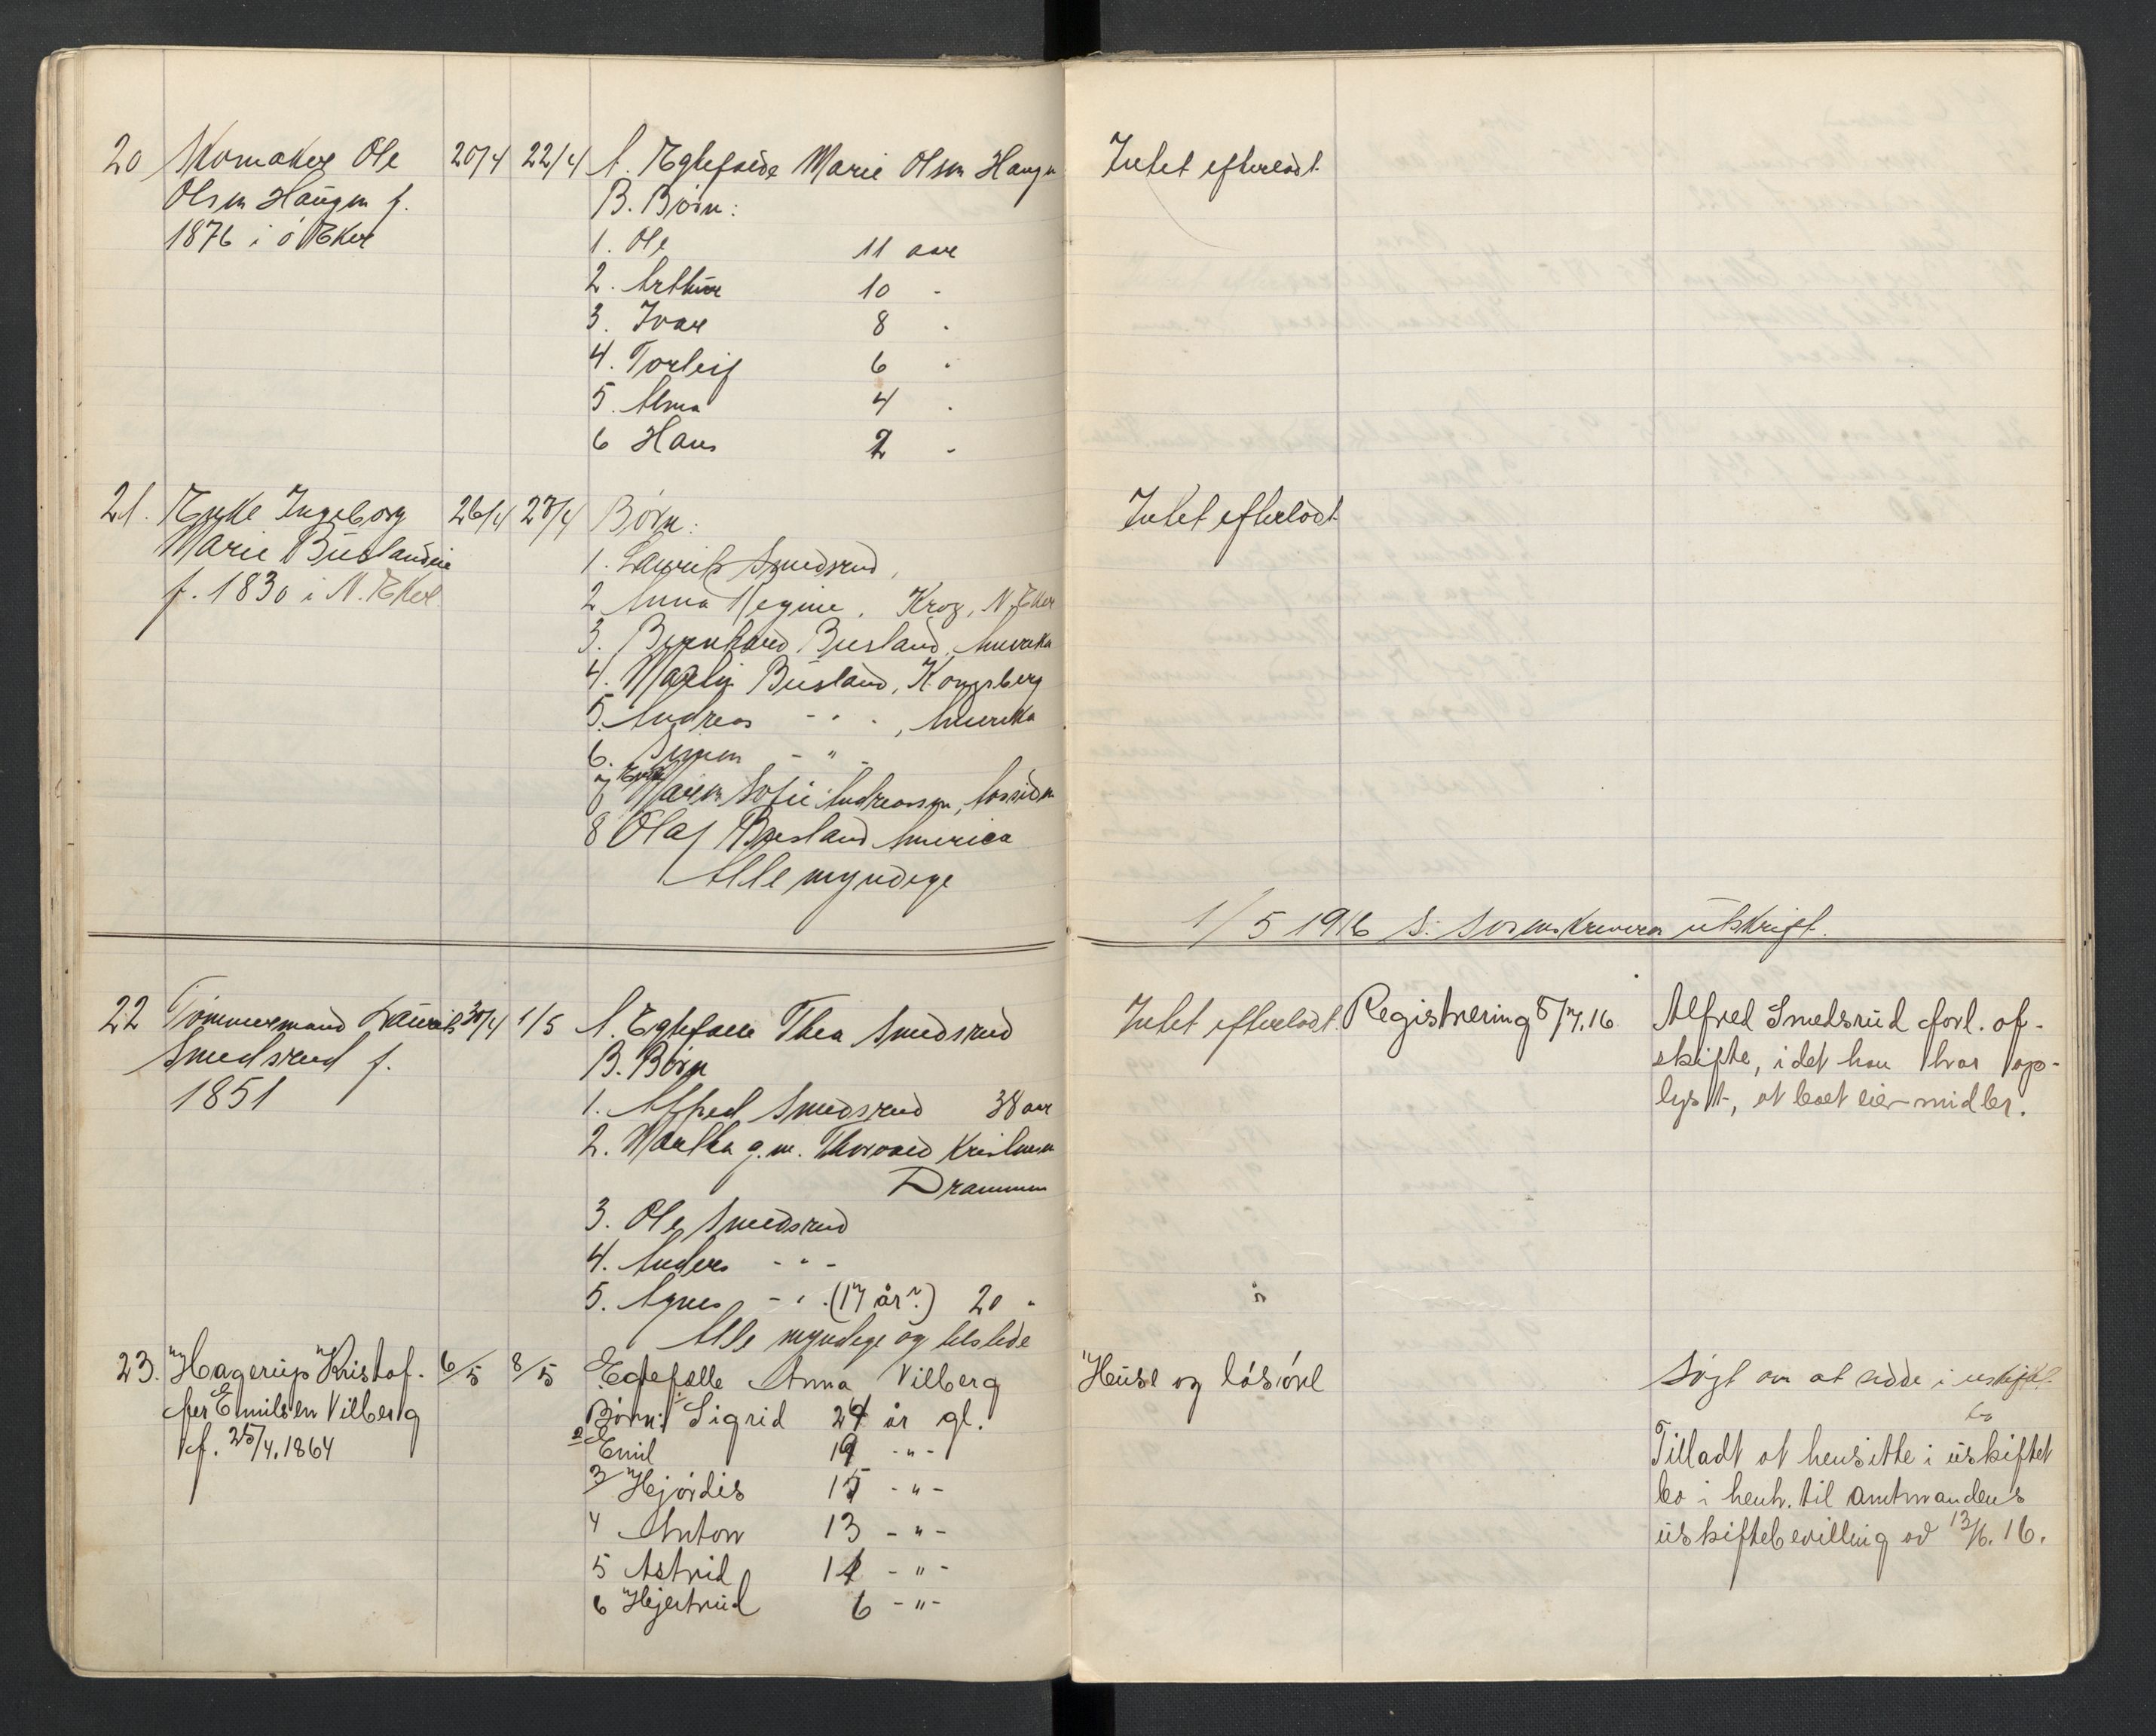 20 Skomaker Ole 20/4 22/4 A. Egtefælde Marie Olsen Haugen Intet efterladt.
Olsen Haugen f. B. Børn:
1876 i ø Eker 1. Ole 11 aar
2. Arthur 10 -
3. Ivar 8 -
4. Torleif 6 -
5. Alma 4 -
6 Hans 2 -
21. Enke Ingeborg 26/4 27/4 Børn: Intet efterladt
Marie Buslandeie 1. Laurits Smedsrud,
f. 1830 i N. Eker 2 Anna Regine, Krog, N. Eker
3. Bernhard Busland, Amerika
4. Busland, Kongsberg
5. Andreas - " - , Amerika
6. Simen - " -
7 Enke Maren Sofie Andreassen,
8 Olaf Busland America
Alle myndige
1/5 1916 S. Sorenskriveren utskrift.
22 Tømmermand Laurits 30/4 1/5 A. Egtefælle Thea Smedsrud Intet efterladt. Registrering 8/7.16 Alfred Smedsrud forl. of.
Smedsrud f. B. Børn skifte, idet han har op-
1851 1. Alfred Smedsrud 38 aar lyst, at boet eier midler.
2. Martha g.m. Thorvald Kristensen
Drammen
3. Ole Smedsrud
4. Anders - " -
5. Agnes - " - (17 år?) 20 -
Alle myndige og tilstede
23. Hagerup Kristof- 6/5 8/5 Egtefælle Anna Vilberg Huse og løsøre Søgt om at sidde i uskiftet
fer Emilsen Vilberg Børn: 1 Sigrid 24 år gl. bo
f. 25/4.1864 2 Emil 19 - " - Tilladt at hensitte i uskiftet
3 Hjørdis 15 - " - bo i henh. til Amtmandens
4 Anton 13 - " - uskiftebevilling ad 13/6.16.
5 Astrid 11 - " -
6 Hjertrud 6 - " -